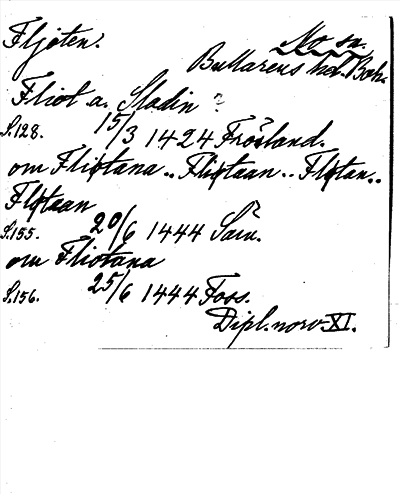 Fljøten.
Mo sn.
Bullarens hd. Boh.
Fliot a. Stadin ?
S.128. 15/3 1424 Frösland.
om Fliotana .. Fliotaan .. Fløtan ..
Fløtaan
S.155. 20/6 1444 Säm.
om Fliotana
S.156. 25/6 1444 Foss.
Dipl. norv. XI.